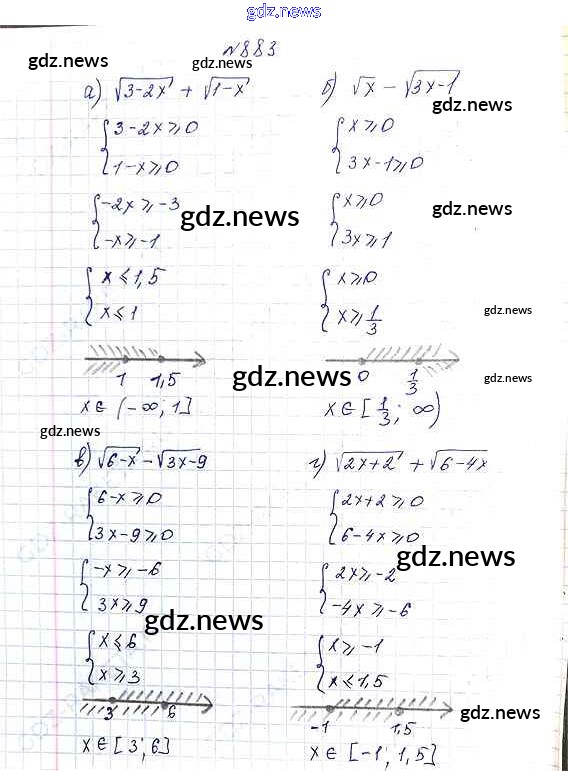 gdz.news
№883
gdz.news
а) √3-2x + √1-x
б) √x - √3x-1
gdz.news
{ 3-2x ≥ 0
1-x ≥ 0
{ x ≥ 0
3x-1 ≥ 0
{ -2x ≥ -3
-x ≥ -1
gdz.news
{ x ≥ 0
3x ≥ 1
gdz.news
{ x ≤ 1,5
x ≤ 1
{ x ≥ 0
x ≥ 1/3
gdz.news
1 1,5
gdz.news
0 1/3
gdz.news
x ∈ (-∞; 1]
x ∈ [1/3; ∞)
gdz.news
в) √6-x - √3x-9
г) √2x+2 + √6-4x
{ 6-x ≥ 0
3x-9 ≥ 0
{ 2x+2 ≥ 0
6-4x ≥ 0
gdz.news
{ -x ≥ -6
3x ≥ 9
{ 2x ≥ -2
-4x ≥ -6
gdz.news
{ x ≤ 6
x ≥ 3
{ x ≥ -1
x ≤ 1,5
3 6
-1 1,5
gdz.news
x ∈ [3; 6]
x ∈ [-1; 1,5]